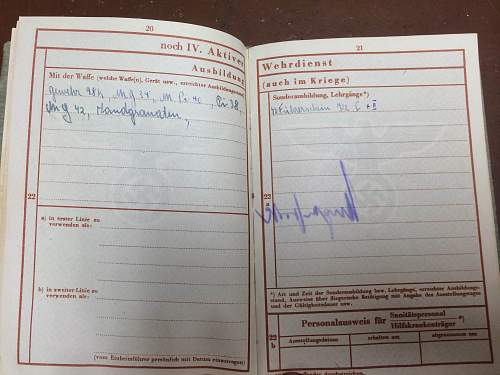 20
noch IV. Aktiver
Ausbildung
Mit der Waffe (welche Waffe[n], Gerät usw., erreichte Ausbildungsstufe)
gewehr 98k, M.G. 34, M. Pi. 40, Pi. 38,
M.G. 42, Handgranaten,
22
a) in erster Linie zu
verwenden als:
b) in zweiter Linie zu
verwenden als:
(vom Einheitsführer persönlich mit Datum einzutragen)
21
Wehrdienst
(auch im Kriege)
Sonderausbildung, Lehrgänge*)
Führerschein Kl. + II
22
a
*) Art und Zeit der Sonderausbildung bzw. Lehrgänge, erreichte Ausbildungs-
stand, Ausweise über fliegerische Betätigung mit Angabe des Ausstellungstages
und der Gültigkeitsdauer usw.
22
b
Personalausweis für Sanitätspersonal
Hilfskrankenträger *)
Ausstellungsdatum
erhalten am
abgenommen am